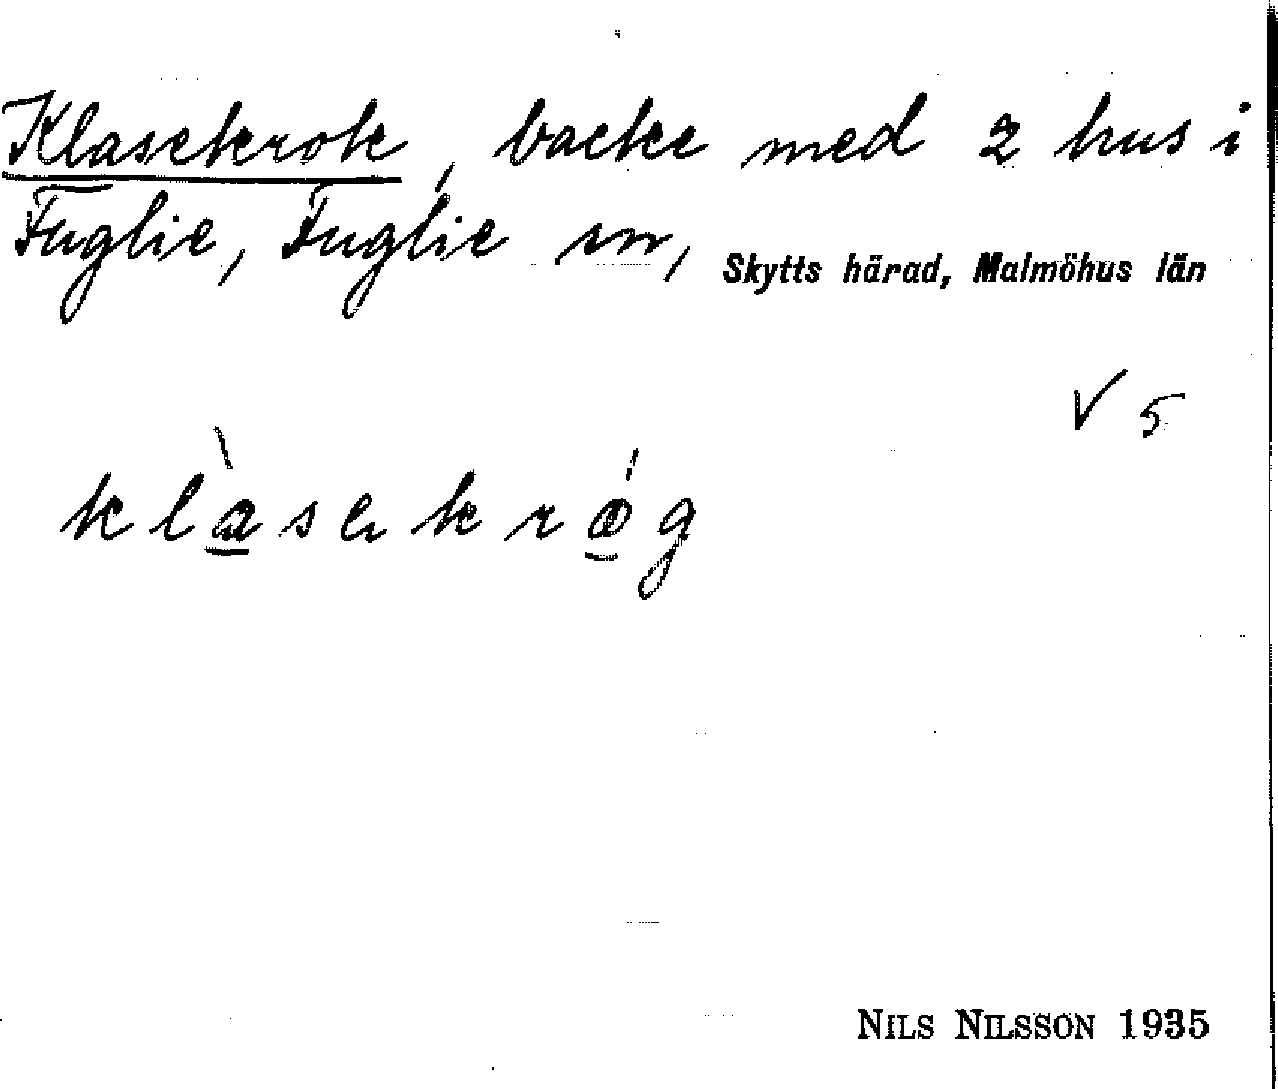 Klasekrok, backe med 2 hus i
Fuglie, Fuglie sn, Skytts härad, Malmöhus län
V 5
NILS NILSSON 1935